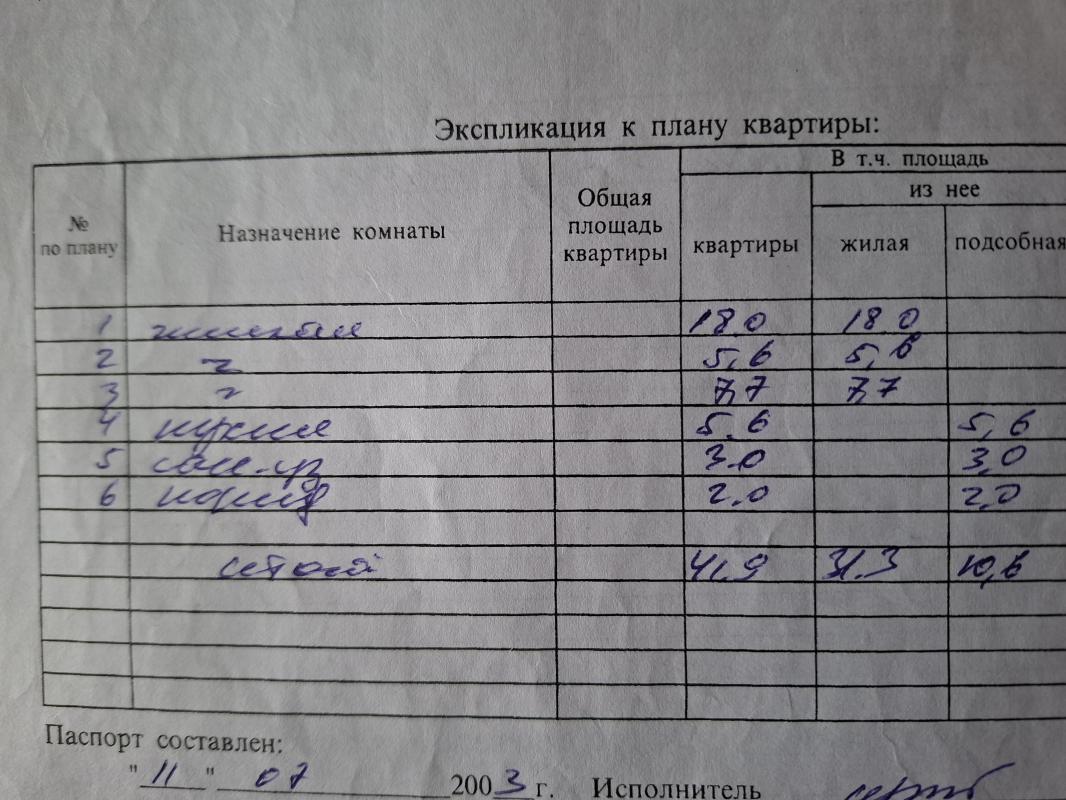 Экспликация к плану квартиры:
№ по плану Назначение комнаты Общая площадь квартиры В т.ч. площадь
квартиры из нее
жилая подсобная
1 жилая 18 0 18 0
2 " 5,6 5,6
3 " 7,7 7,7
4 кухня 5 6 5,6
5 сан.уз 3.0 3,0
6 корид 2.0 2,0
итого 41.9 31.3 10,6
Паспорт составлен:
" 11 " 07 2003 г. Исполнитель